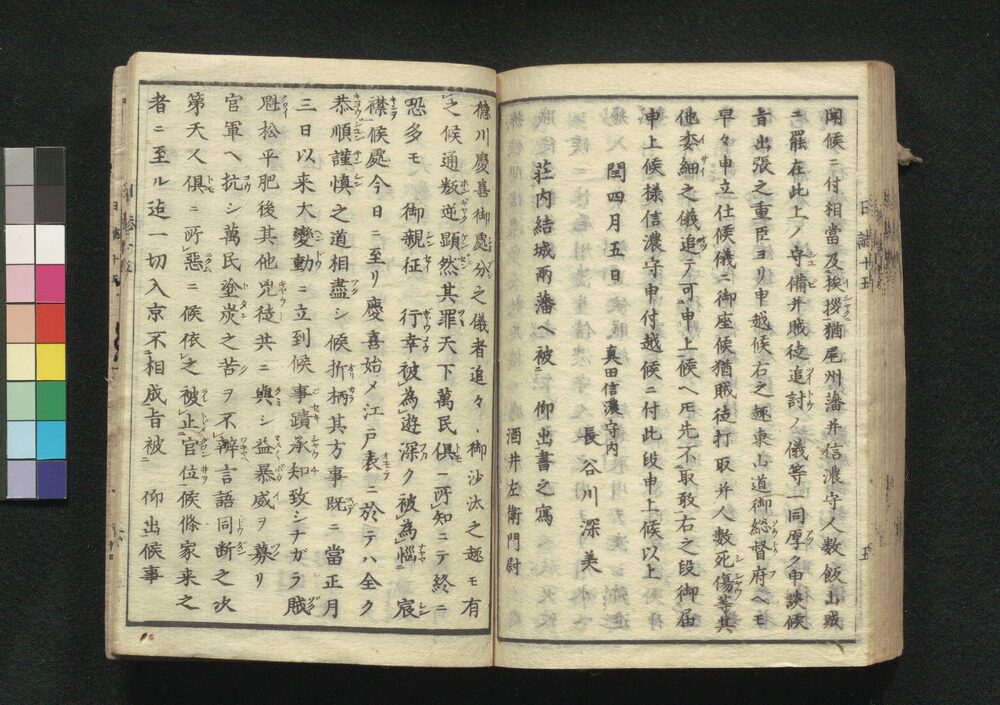 聞候ニ付相當及挨拶猶尾州藩并信濃守人數飯山城
ニ罷在此上ノ守備并賊徒追討ノ儀等一同厚ク申談候
旨出張之重臣ヨリ申越候右之趣東山道御総督府ヘモ
早々申立仕候儀ニ御座候猶賊徒打取并人數死傷等其
他委細之儀追テ可申上候ヘ𪜈先不取敢右之段御届
申上候様信濃守申付越候ニ付此段申上候以上
閏四月五日　真田信濃守内
長谷川深美
荘内結城両藩ヘ被仰出書之寫
酒井左衛門尉
徳川慶喜御處分之儀者追々御沙汰之趣モ有
之候通叛逆顕然其罪天下萬民倶ニ所知ニテ終ニ
恐多モ　御親征　行幸被為遊深ク被為惱　宸
襟候處今日ニ至リ慶喜始メ江戸表ニ於テハ全ク
恭順謹慎之道相盡シ候折柄其方事既ニ當正月
三日以来大變動ニ立到候事蹟承知致シナガラ賊
魁松平肥後其他兇徒共ニ與シ益暴威ヲ募リ
官軍ヘ抗シ萬民塗炭之苦ヲ不辭言語同断之次
第天人倶ニ所惡ニ候依之被止官位候條家来之
者ニ至ル迠一切入京不相成旨被　仰出候事
日誌十五
五